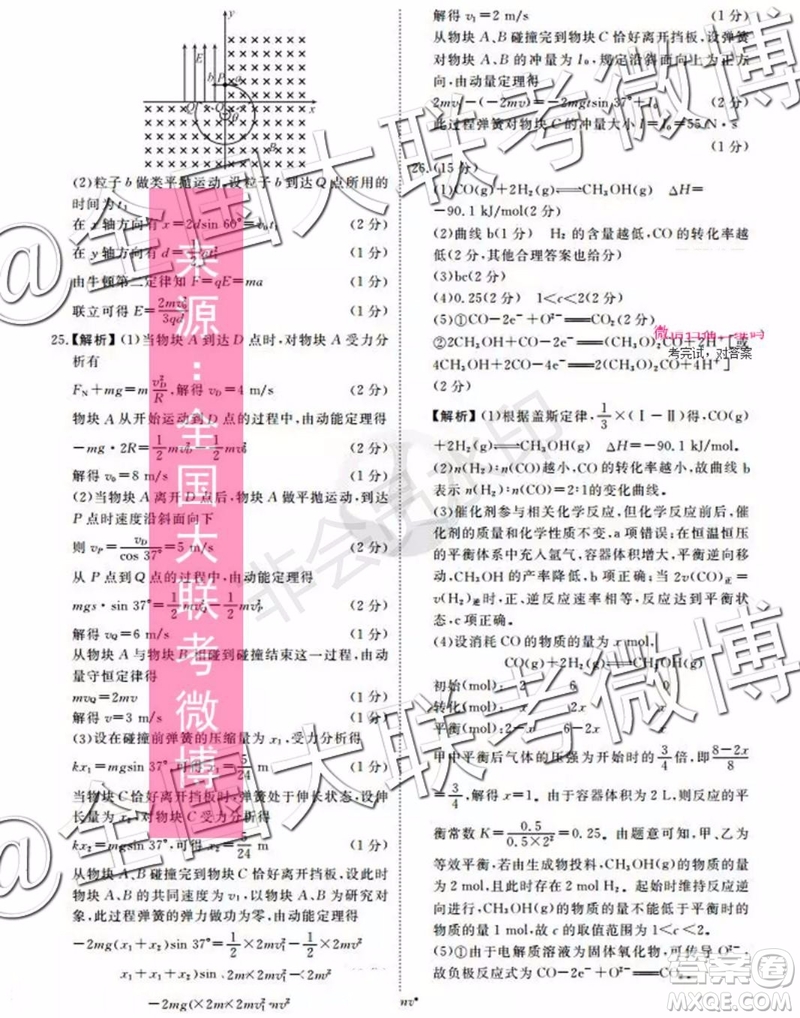 y
E
b
P
a
Q
O
θ
x
B
(2)粒子b做类平抛运动,设粒子b到达Q点所用的
时间为t₁
在x轴方向有x=2dsin 60°=v₀t₁ (2分)
在y轴方向有d= (2分)
由牛顿第二定律知F=qE=ma (1分)
联立可得E=2mv₀²/3qd (1分)
25.【解析】(1)当物块A到达D点时,对物块A受力分
析有
F_N+mg=m v_D²/R,解得v_D=4 m/s (2分)
物块A从开始运动到D点的过程中,由动能定理得
-mg·2R=1/2 mv_D²-1/2 mv₀² (2分)
解得v₀=8 m/s (1分)
(2)当物块A离开D点后,物块A做平抛运动,到达
P点时速度沿斜面向下
则v_P=v_D/cos 37°=5 m/s (1分)
从P点到Q点的过程中,由动能定理得
mgs·sin 37°=1/2 mv_Q²-1/2 mv_P² (2分)
解得v_Q=6 m/s (1分)
从物块A与物块B相碰到碰撞结束这一过程,由动
量守恒定律得
mv_Q=2mv (1分)
解得v=3 m/s (1分)
(3)设在碰撞前弹簧的压缩量为x₁,受力分析得
kx₁=mgsin 37°,可得x₁=5/24 m (1分)
当物块C恰好离开挡板时,弹簧处于伸长状态,设伸
长量为x₂,对物块C受力分析得
kx₂=mgsin 37°,可得x₂=5/24 m (1分)
从物块A、B碰撞完到物块C恰好离开挡板,设物块
A、B的共同速度为v₁,以物块A、B为研究对
象,此过程弹簧的弹力做功为零,由动能定理得
-2mg(x₁+x₂)sin 37°=1/2×2mv₁²-1/2×2mv²
x₁+x₂)sin 2m×2mv₁²-2mv²
-2mg(×2m×2mv₁²·nv²
解得v₁=2 m/s (1分)
从物块A、B碰撞完到物块C恰好离开挡板,设弹簧
对物块A、B的冲量为I₀,规定沿斜面向上为正方
向,由动量定理得
2mv₁-(-2mv)=-2mgtsin 37°+I₀ (2分)
此过程弹簧对物块C的冲量大小I=I₀=55 N·s
(1分)
26.(15分)
(1)CO(g)+2H₂(g)⇌CH₃OH(g) ΔH=
-90.1 kJ/mol(2分)
(2)曲线b(1分) H₂的含量越低,CO的转化率越
低(2分,其他合理答案也给分)
(3)bc(2分)
(4)0.25(2分) 1<c<2(2分)
(5)①CO-2e⁻+O²⁻═CO₂(2分)
②2CH₃OH+CO-2e⁻═(CH₃O)₂CO+2H⁺[或
4CH₃OH+2CO-4e⁻═2(CH₃O)₂CO+4H⁺]
(2分)
考完试,对答案
【解析】(1)根据盖斯定律,1/3×(Ⅰ-Ⅱ)得,CO(g)
+2H₂(g)⇌CH₃OH(g) ΔH=-90.1 kJ/mol。
(2)n(H₂):n(CO)越小,CO的转化率越小,故曲线b
表示n(H₂):n(CO)=2:1的变化曲线。
(3)催化剂参与相关化学反应,但化学反应前后,催
化剂的质量和化学性质不变,a项错误;在恒温恒压
的平衡体系中充入氩气,容器体积增大,平衡逆向移
动,CH₃OH的产率降低,b项正确;当2v(CO)正=
v(H₂)逆时,正、逆反应速率相等,反应达到平衡状
态,c项正确。
(4)设消耗CO的物质的量为x mol,
CO(g)+2H₂(g)⇌CH₃OH(g)
初始(mol): 2 6 0
转化(mol): x 2x x
平衡(mol): 2-x 6-2x x
甲中平衡后气体的压强为开始时的3/4倍,即(8-2x)/8
=3/4,解得x=1。由于容器体积为2 L,则反应的平
衡常数K=0.5/(0.5×2²)=0.25。由题意可知,甲、乙为
等效平衡,若由生成物投料,CH₃OH的物质的量
为2 mol,还存在2 mol H₂。起始时维持反应逆
向进行,CH₃OH的物质的量不能低于平衡时的
物质的量1 mol,故c的取值范围为1<c<2。
(5)①由于电解质溶液为固体氧化物,可传导O²⁻,
故负极反应式为CO-2e⁻+O²⁻═CO₂
nv²
来源:全国大联考微博
@全国大联考微博
@全国大联考微博
非会员水印
答案圈
MXQE.COM